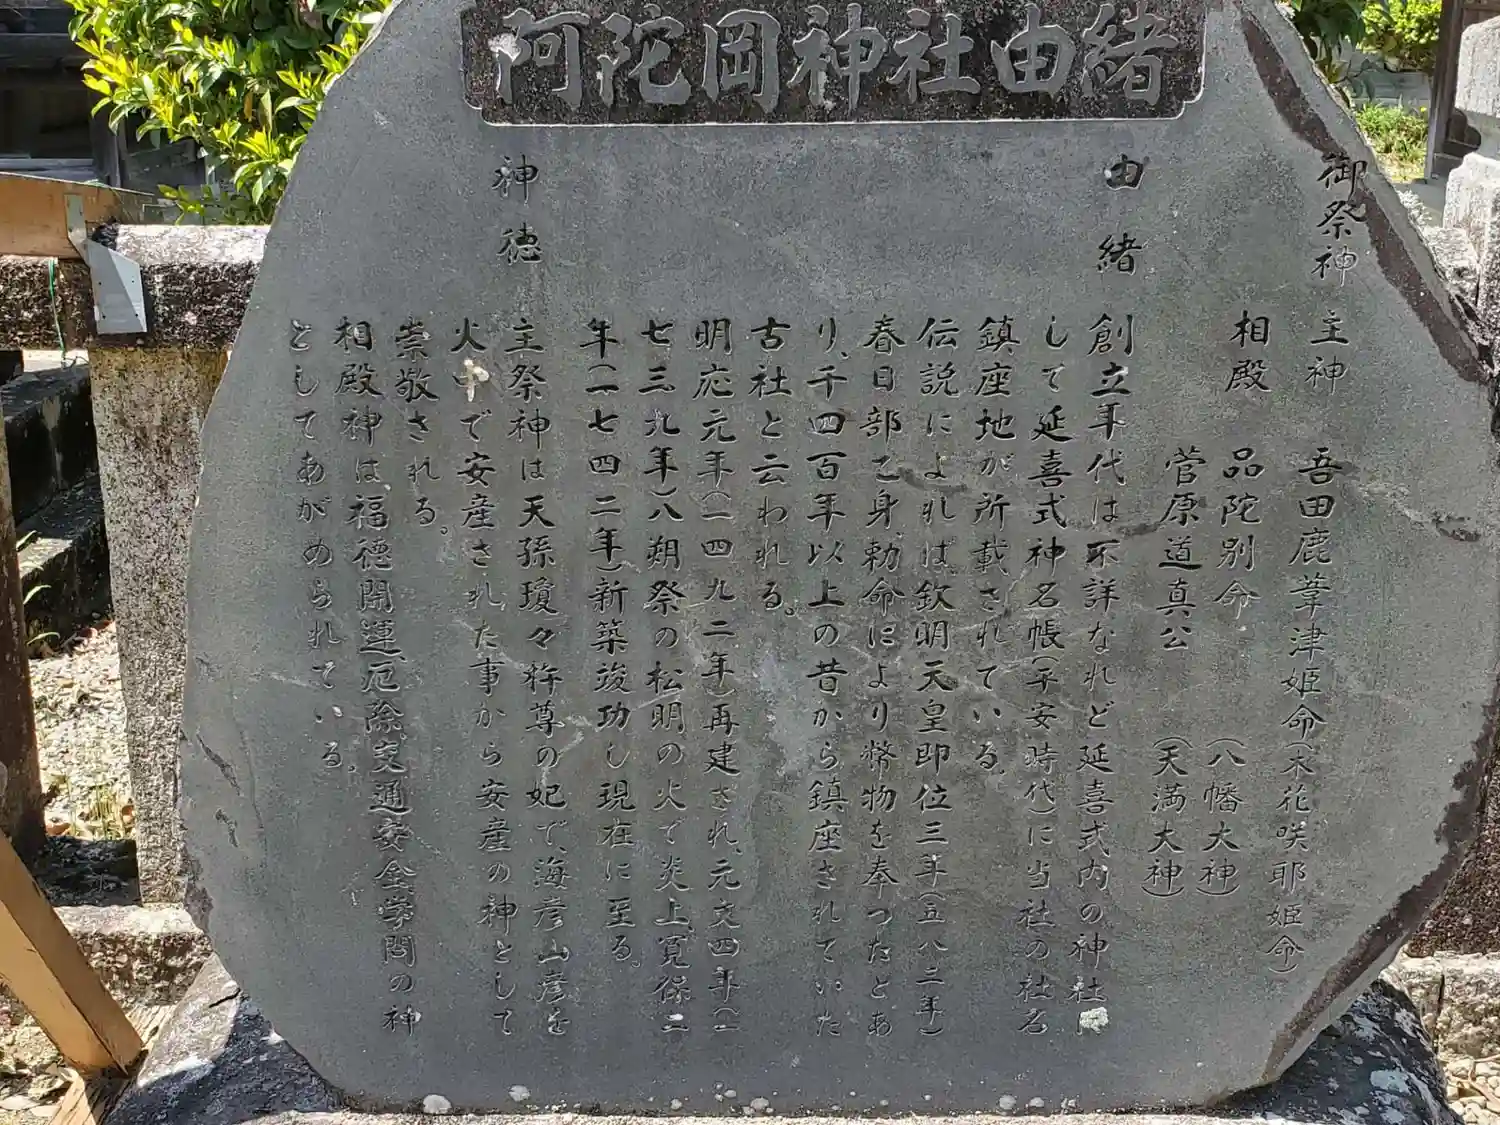 阿陀岡神社由緒
御祭神 主神 吾田鹿葦津姫命(木花咲耶姫命)
相殿 品陀別命 (八幡大神)
菅原道真公 (天満大神)
由緒 創立年代は不詳なれど延喜式内の神社に
して延喜式神名帳(平安時代)に当社の社名
鎮座地が所載されている。
伝説によれば欽明天皇即位三年(五八二年)
春日部乙身、勅命により幣物を奉つたとあ
り、千四百年以上の昔から鎮座されていた
古社と云われる。
明応元年(一四九二年)再建され、元文四年(一
七三九年)八朔祭の松明の火で炎上寛保二
年(一七四二年)新築竣功し現在に至る。
神徳 主祭神は天孫瓊々杵尊の妃で、海彦山彦を
火中で安産された事から安産の神として
崇敬される。
相殿神は福徳開運、厄除、交通安全、学問の神
としてあがめられている。